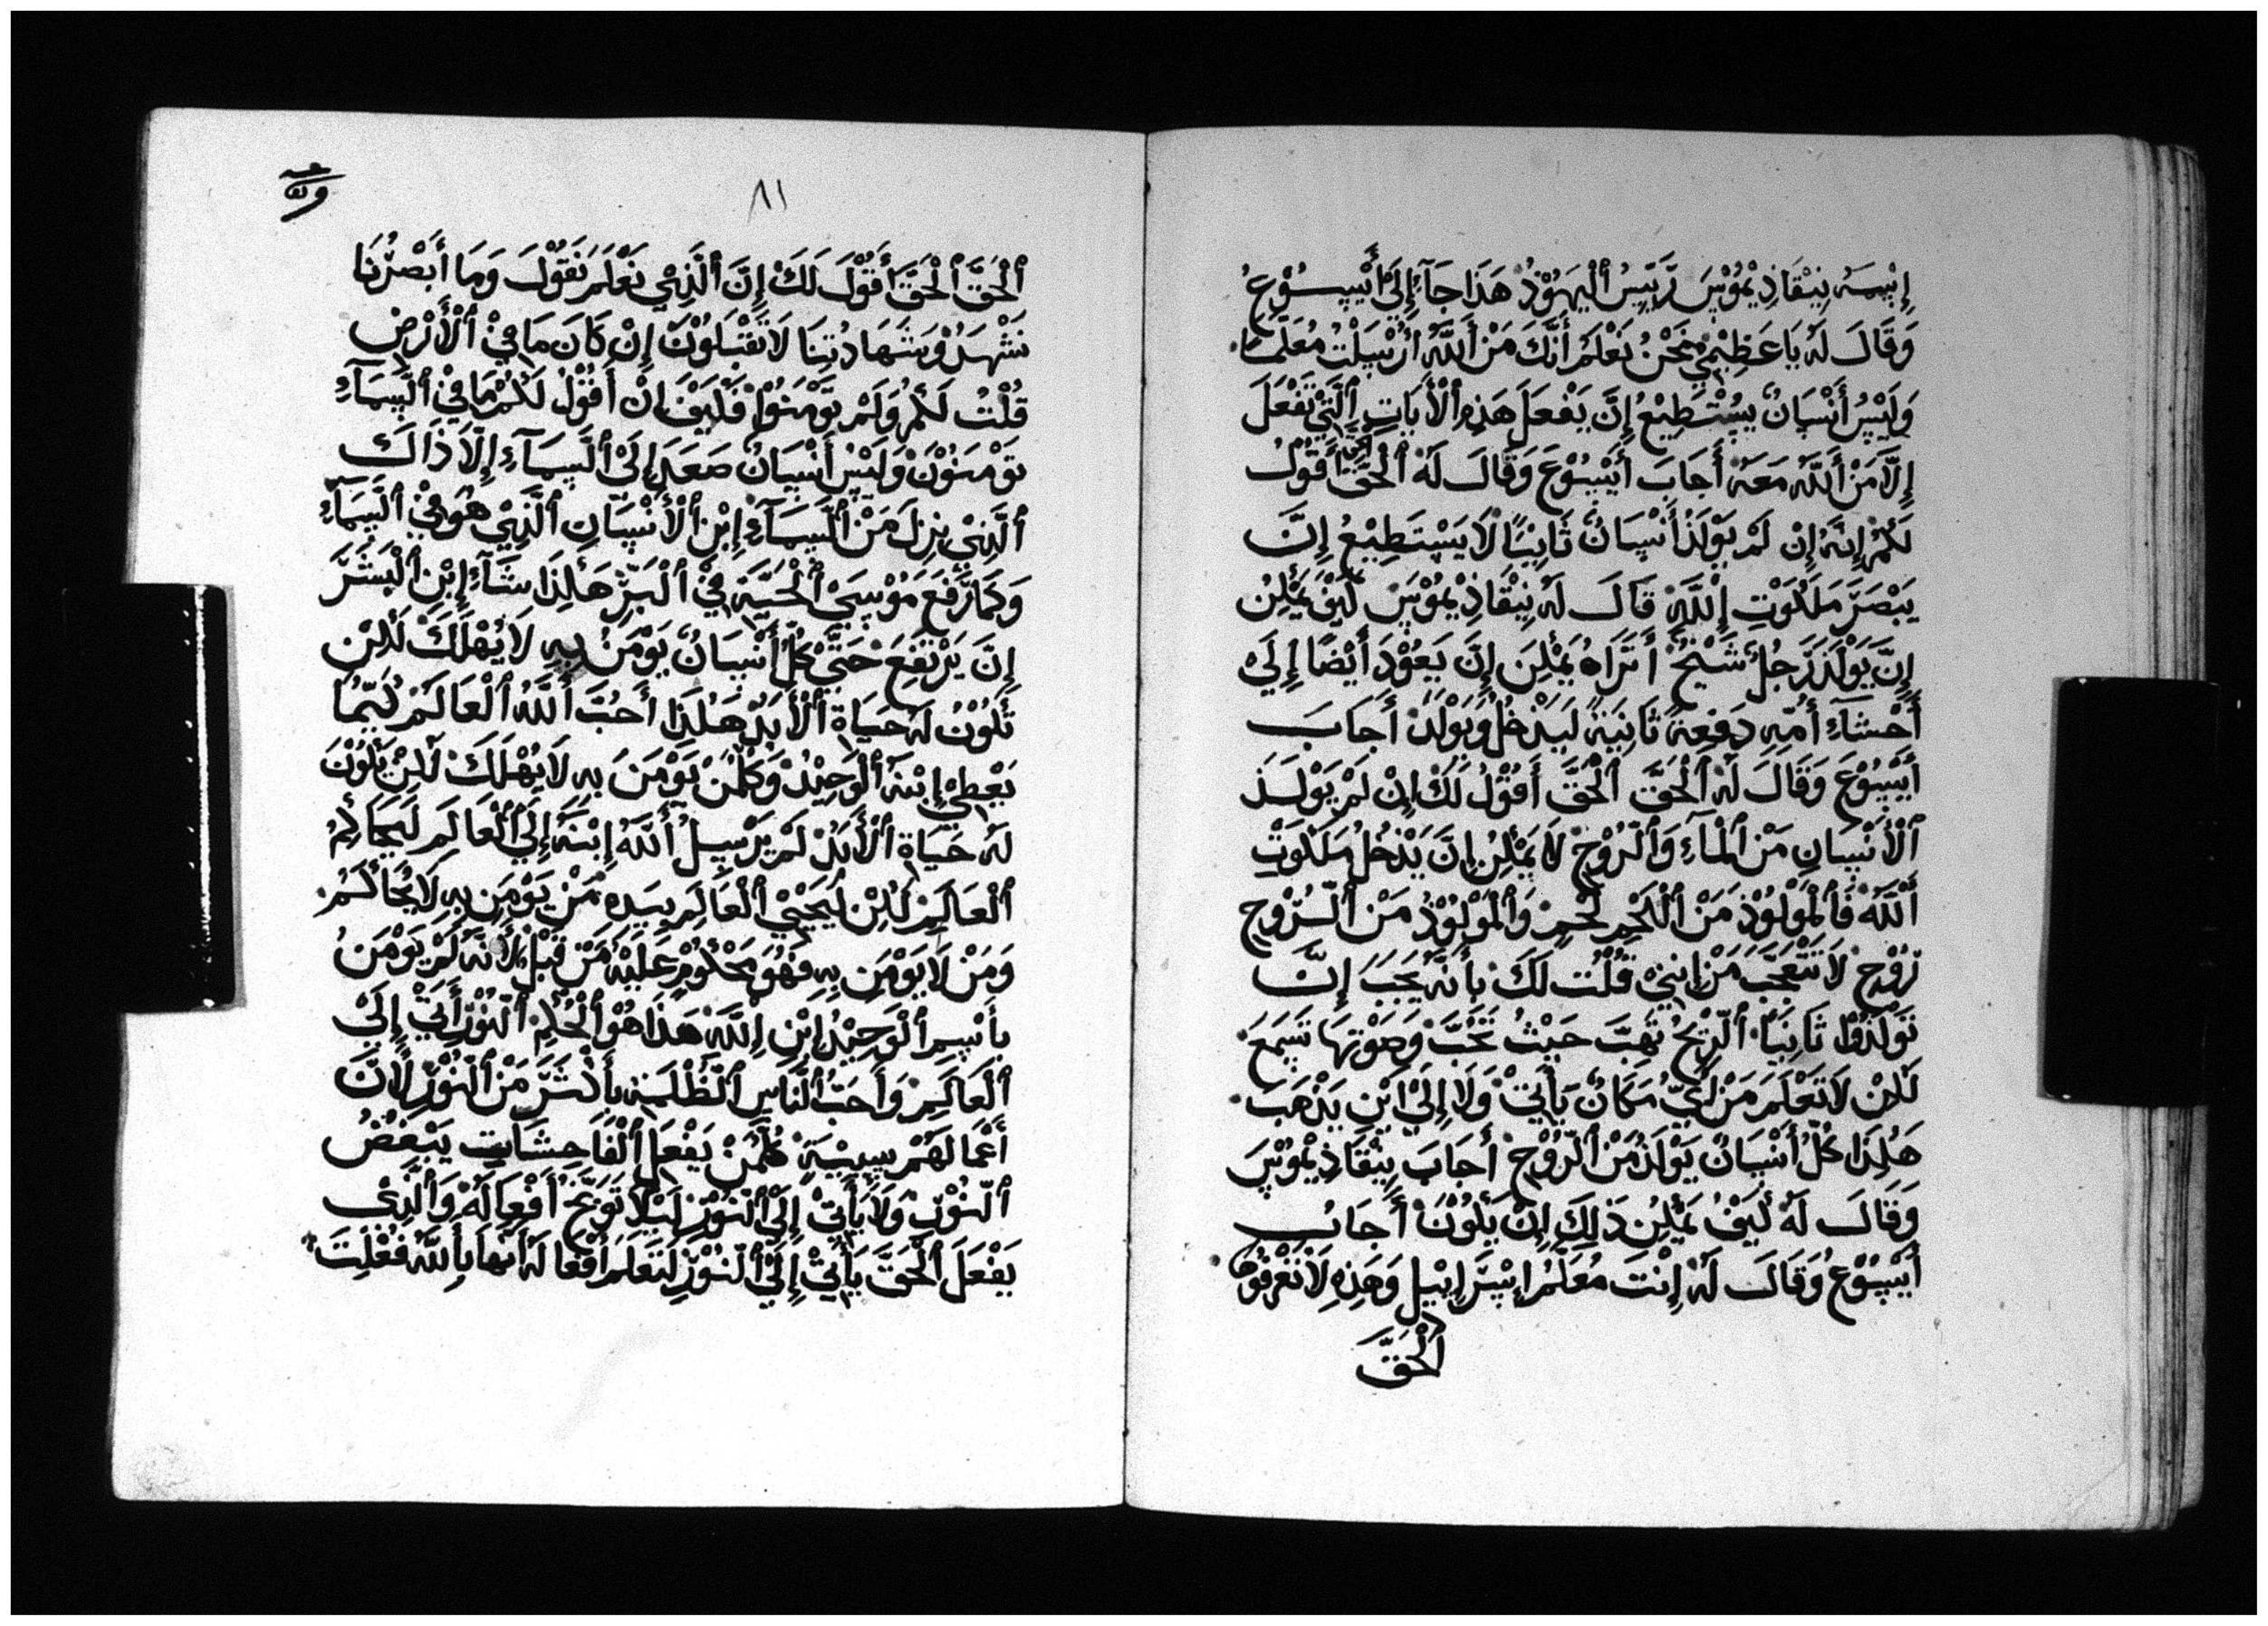 إِبْسِمَهُ نِيْقَاذِيْمُوْسَ رَيِّيسُ ٱلْيَهُوْدُ هَذَا جَآءَ إِلَىٰ أَيْسُوْعُ
وَقَالَ لَهُ يَا عَظِيْمِيْ نَحْنُ نَعْلَمُ أَنَّكَ مَنْ أَللَّهُ أُرْسِلْتُ مُعَلِّمًا
وَلَيْسُ أَنْسَانٌ يِسْتَطِيْعُ إِنَّ يَفْعَلَ هَذِهِ ٱلْأَيَاتِ ٱلَّتِيْ تَفْعَلَ
إِلَّا مَنْ أَللَّهُ مَعَهُ أَجَابَ أَيْسُوْعَ وَقَالَ لَهُ ٱلْحَقَّ أَقُوْلُ
لَكُمْ إِنَّهُ إِنْ لَمْ يُوْلَدُ أَنْسَانٌ ثَانِيًا لَا يَسْتَطِيْعُ إِنَّ
يَبْصَرَ مَلَكُوْتِ إِللَّهِ قَالَ لَهُ نِيْقَاذِيْمُوْسَ كَيْفَ يَمْكِنُ
إِنَّ يَوْلَدَ رَجُلٌ شَيْخٌ أَتَرَاهُ يَمْكِنَ إِنَّ يَعُوْدَ أَيْضًا إِلَىٰ
أَحْشَآءِ أُمِّهِ دَفِعَةً ثَانِيَةً لَيَدْخُلُ وَيُوْلَدْ أَجَابَ
أَيْسُوْعَ وَقَالَ لَهُ ٱلْحَقَّ ٱلْحَقَّ أَقُوْلُ لَكَ إِنْ لَمْ يَوْلَدَ
ٱلْأَنْسَانِ مَنْ ٱلْمَآءِ وَٱلرُّوْحْ لَا يَمْكِنُ إِنَّ يَدْخُلُ مَلَكُوْتِ
أَللَّهُ فَٱلْمَوْلُوْدْ مَنْ ٱللَّحْمِ لَحْمٍ وَٱلْمَوْلُوْدُ مَنْ ٱلرُّوْحِ
رُوْحْ لَا تَتَعَجَّبَ مَنْ إِنِيْ قُلْتُ لَكَ بِأَنَّهُ يَجَبَ إِنَّ
تَوْلَدُوْا ثَانِيًا ٱلرِّيْحُ تَهِبَّ حَيْثُ تَحُبَّ وَصَوْتِهَا تَسَمَعَ
لَكِنْ لَا تَعْلَمَ مَنْ أَيِّ مَكَانٌ يَأَتِيْ وَلَا إِلَىٰ أَيْنِ يَذْهَبَ
هَكَذَا كُلُّ أَنْسَانٌ يَوْلَدُ مَنْ ٱلرُّوْحْ أَجَابَ نِيْقَاذِيْمُوْسَ
وَقَالَ لَهُ كَيْفُ يَمْكِنُ ذَلِكَ إِنَّ يَكُوْنَ أَجَابُ
أَيْسُوْعُ وَقَالَ لَهُ إِنْتَ مُعَلِّمُ إِسْرَإِيْلِ وَهَذِهِ لَا تَعْرِفُهَا
ٱلْحَقَّ
٨١
ٱلْحَقَّ ٱلْحَقَّ أَقُوْلَ لَكَ إِنَّ ٱلَّذِيْ نَعْلَمَ نَقُوْلَ وَمَا أَبْصَرْنَا
نَشْهَدُ وَشَهَادُتِنَا لَا تَقْبَلُوْنَ إِنْ كَانَ مَا فِيْ ٱلْأَرْضِ
قُلْتُ لَكُمْ وَلَمْ تَوْمَنُوْا فَكَيْفَ إِنْ أَقُوْلُ لَكُمْ مَا فِيْ ٱلسَّمَآءِ
تَوْمَنُوْنَ وَلَيْسُ أَنْسَانٌ صَعَدَ إِلَىٰ ٱلسَّمَآءِ إِلَّا ذَالَكَ
ٱلَّذِيْ نِزِلَ مَنْ ٱلسَّمَآءِ إِبْنِ ٱلْأَنْسَانِ ٱلَّذِيْ هُوَ فِيْ ٱلسَّمَآءِ
وَكَمَا رَفَعَ مَوْسَىْ ٱلْحَيَّةِ فِيْ ٱلْبَرِّ هَكَذَا شَآءِ إِبْنِ ٱلْبَشَرَّ
إِنَّ يَرْتَفِعَ حَتَّىْ كُلُّ أَنْسَانٌ يَوْمَنُ بِهِ لَا يُهْلَكَ لَكِنْ
تَكُوْنُ لَهُ حَيَاةِ ٱلْأَبَدْ هَكَذَا أَحُبَّ أَللَّهُ ٱلْعَالَمَ كَيّمَا
يَعْطِيْ إِبْنَهُ ٱلْوَحِيْدُ وَكِلْمَنْ يَوْمَنَ بِهِ لَا يَهْلَكَ لَكِنْ يَكُوْنَ
لَهُ حَيَاةِ ٱلْأَبَدْ لَمْ يَرْسِلُ أَللَّهُ إِبْنَهُ إِلَىٰ ٱلْعَالَمِ لَيَحَاكِمُ
ٱلْعَالَمِ لَكِنْ لَيَحْيِيْ ٱلْعَالَمِ بِيَدِهِ مَنْ يَوْمَنِ بِهِ لَا يُحَاكَمُ
وَمَنْ لَا يَوْمَنِ بِهِ فَهُوَ مَحْكُوْمٍ عَلَيْهُ مَنْ قَبْلُ لِأَنَّهُ لَمْ يَوْمَنُ
بِأَسِمِ ٱلْوَحِيْدُ إِبْنِ إِللَّهِ هَذَا هُوَ ٱلْحُكْمِ ٱلنُّوْرُ أَتِيْ إِلَىْ
ٱلْعَالَمِ وَأَحَبُّ ٱلنَّاسِ ٱلظُّلْمَةِ بِأَكْثَرِّ مَنْ ٱلنُّوْرِ لِأَنَّ
أَعْمَالَهُمْ سِيِيَةٍ كُلْمَنْ يَفْعَلِ ٱلْفَاحِشَاتِ يَبْغَضُ
ٱلنُّوْرِ وَلَا يَأَتِيْ إِلَىْ ٱلنُّوْرِ لَيَلَّا تَوَبَّخْ أَفْعِالَهُ وَٱلَّذِىْ
يَفْعَلَ ٱلْحَقَّ يَأَتِيْ إِلَىْ ٱلنُّوْرِ لَتَعَلَمَ أَفْعَالَهُ أَنَّهَا بِأَللَّهُ فَعْلِتَ